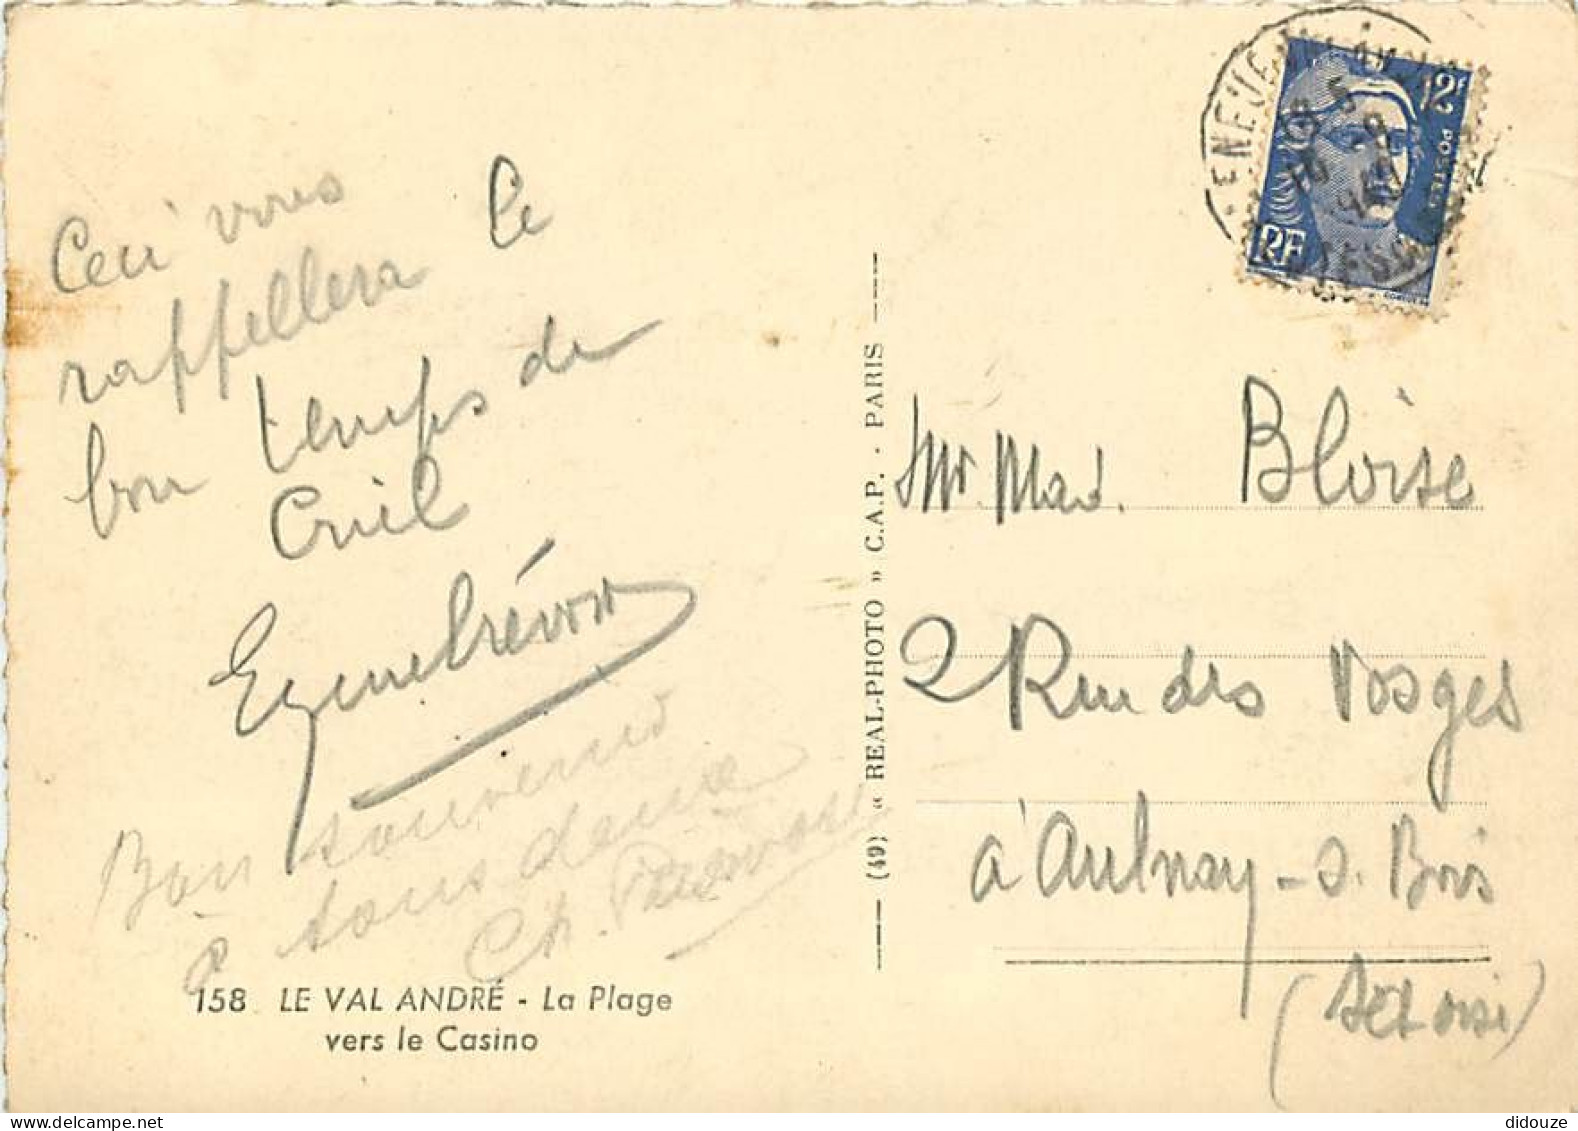 Ceci vous
rappellera le
bon temps de
Bon souvenir
à tous deux
Ch.
158 LE VAL ANDRÉ - La Plage
vers le Casino
(49) « REAL-PHOTO » C.A.P. - PARIS
12F
POSTES
RF
Mr. Mad. Bloise
2 Rue des Vosges
à Aulnay-s. Bois
(Set Oise)
didouze